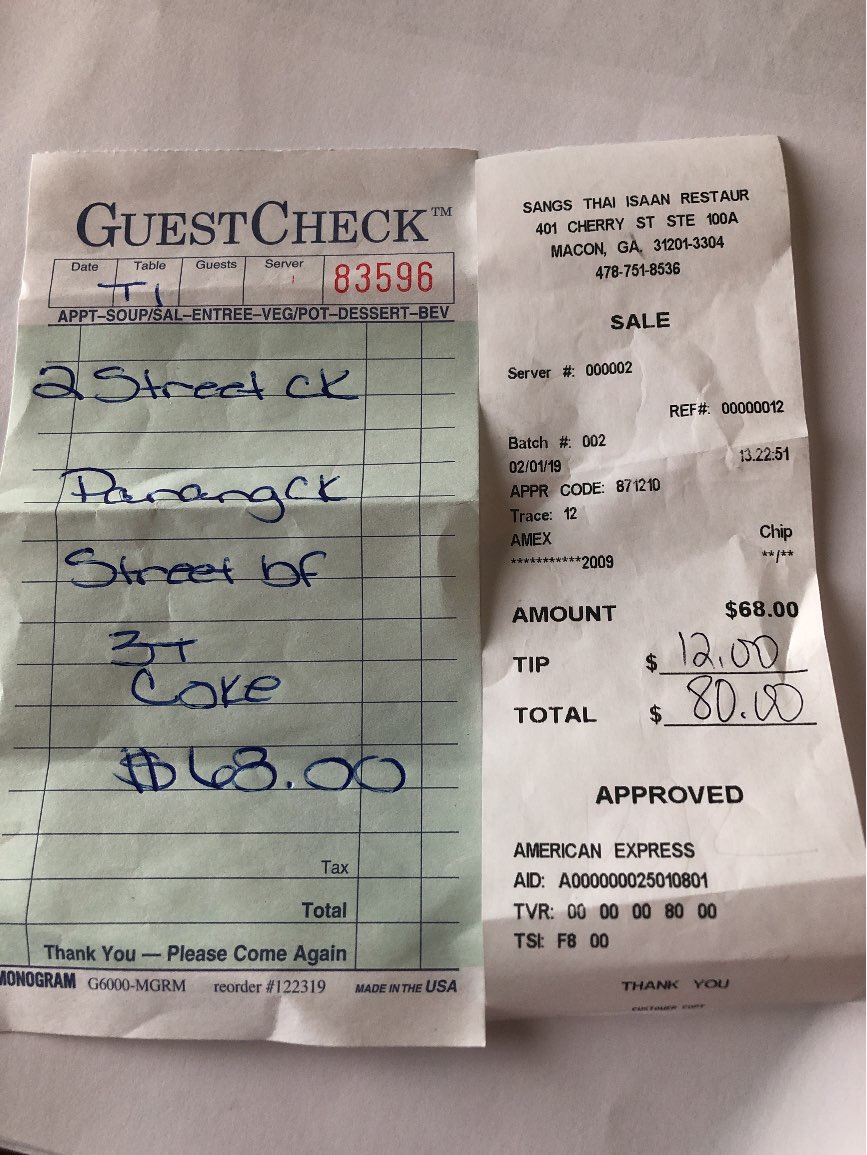 GUESTCHECK™
Date Table Guests Server
T1 83596
APPT–SOUP/SAL–ENTREE–VEG/POT–DESSERT–BEV
2 Street CK
Panang CK
Street bf
3T
Coke
$68.00
Tax
Total
Thank You — Please Come Again
MONOGRAM G6000-MGRM reorder #122319 MADE IN THE USA
SANGS THAI ISAAN RESTAUR
401 CHERRY ST STE 100A
MACON, GA. 31201-3304
478-751-8536
SALE
Server #: 000002
REF#: 00000012
Batch #: 002
02/01/19 13:22:51
APPR CODE: 871210
Trace: 12
AMEX Chip
***********2009 **/**
AMOUNT $68.00
TIP $ 12.00
TOTAL $ 80.00
APPROVED
AMERICAN EXPRESS
AID: A000000025010801
TVR: 00 00 00 80 00
TSI: F8 00
THANK YOU
CUSTOMER COPY